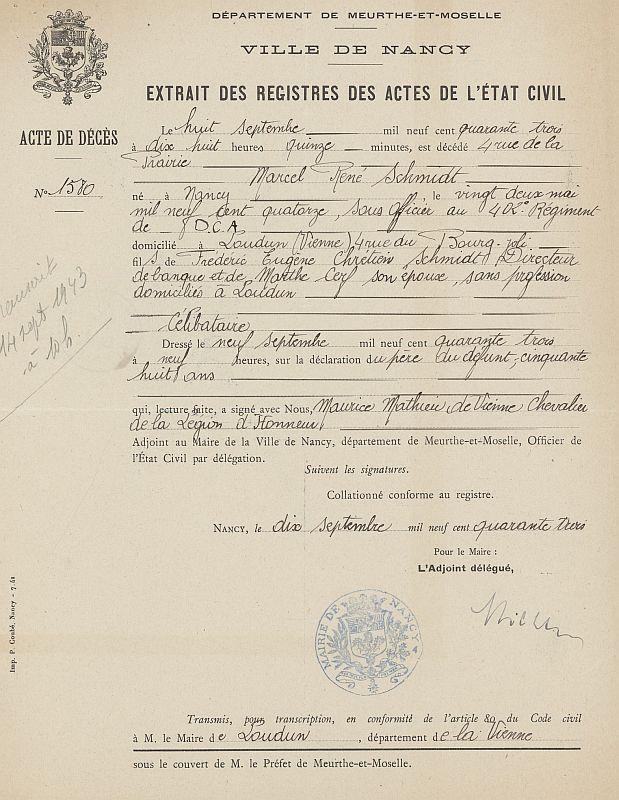 DÉPARTEMENT DE MEURTHE-ET-MOSELLE
VILLE DE NANCY
EXTRAIT DES REGISTRES DES ACTES DE L'ÉTAT CIVIL
ACTE DE DÉCÈS
N° 1580
Le huit septembre mil neuf cent quarante trois
à dix huit heures quinze minutes, est décédé 4 rue de la
Prairie
Marcel René Schmidt
né à Nancy, le vingt deux mai
mil neuf cent quatorze, sous officier au 402e Régiment
de D.C.A
domicilié à Loudun (Vienne) 4 rue du Bourg-joli
fils de Frédéric Eugène Chrétien Schmidt, Directeur
de banque et de Marthe Cerf son épouse, sans profession
domiciliés à Loudun
Célibataire
Dressé le neuf septembre mil neuf cent quarante trois
à neuf heures, sur la déclaration du père du défunt, cinquante
huit ans
qui, lecture faite, a signé avec Nous, Maurice Mathieu de Vienne Chevalier
de la Légion d'Honneur
Adjoint au Maire de la Ville de Nancy, département de Meurthe-et-Moselle, Officier de
l'État Civil par délégation.
Suivent les signatures.
Collationné conforme au registre.
NANCY, le dix septembre mil neuf cent quarante trois
Pour le Maire :
L'Adjoint délégué,
MAIRIE DE NANCY
Transmis, pour transcription, en conformité de l'article 80 du Code civil
à M. le Maire de Loudun, département de la Vienne
sous le couvert de M. le Préfet de Meurthe-et-Moselle.
14 sept 1943
à 10h
Imp. P. Coubé, Nancy - 7.41